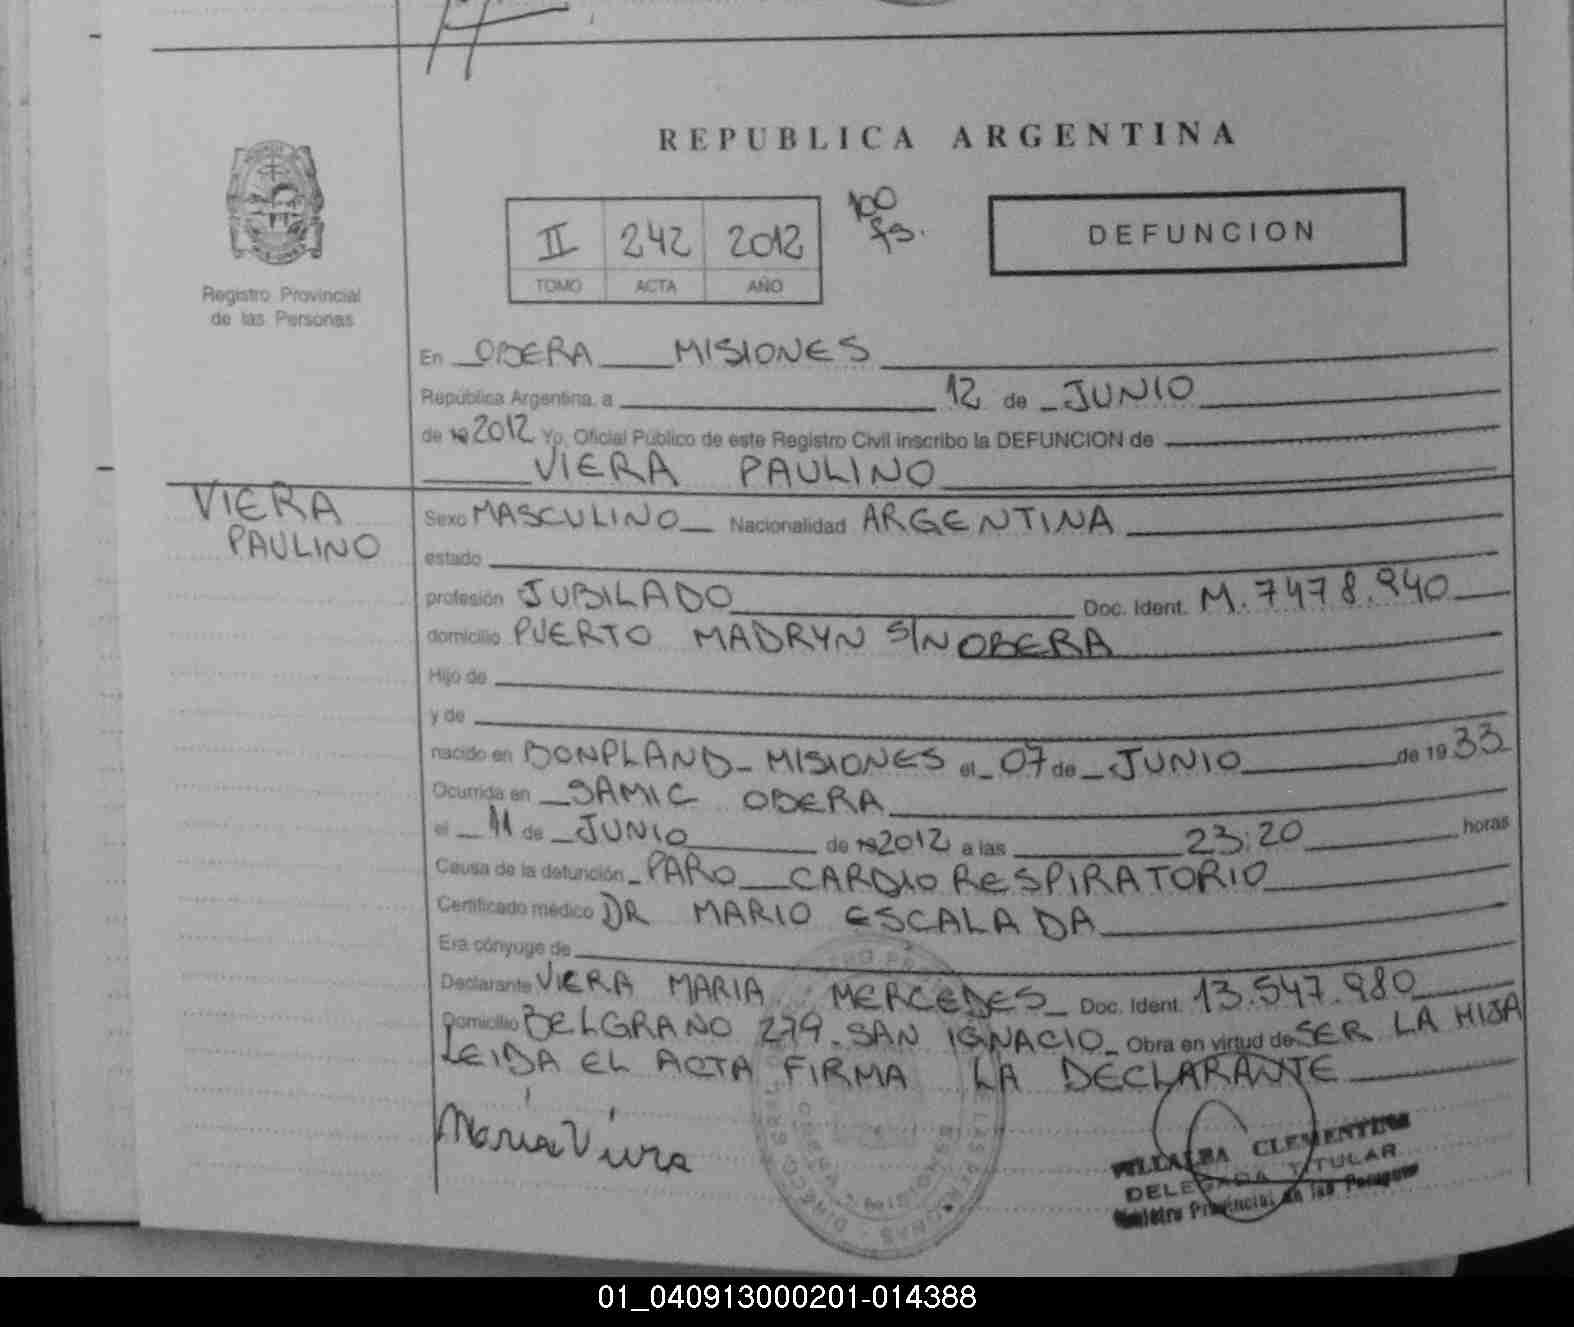 REPUBLICA ARGENTINA
II 242 2012
TOMO ACTA AÑO
100 fs.
DEFUNCION
Registro Provincial
de las Personas
En OBERA MISIONES
República Argentina, a 12 de JUNIO
de 19 2012 Yo, Oficial Público de este Registro Civil inscribo la DEFUNCION de
VIERA PAULINO
VIERA
PAULINO
Sexo MASCULINO Nacionalidad ARGENTINA
estado
profesión JUBILADO Doc. Ident. M. 7478.940
domicilio PUERTO MADRYN S/N OBERA
Hijo de
y de
nacido en BONPLAND - MISIONES el 07 de JUNIO de 1933
Ocurrida en SAMIC OBERA
el 11 de JUNIO de 19 2012 a las 23:20 horas
Causa de la defunción PARO CARDIO RESPIRATORIO
Certificado médico DR MARIO ESCALADA
Era cónyuge de
Declarante VIERA MARIA MERCEDES Doc. Ident. 13.547.980
Domicilio BELGRANO 279 - SAN IGNACIO Obra en virtud de SER LA HIJA
LEIDA EL ACTA FIRMA LA DECLARANTE
Maria Viera
VILLALBA CLEMENTINA
DELEGADA TITULAR
Registro Provincial de las Personas
01_040913000201-014388